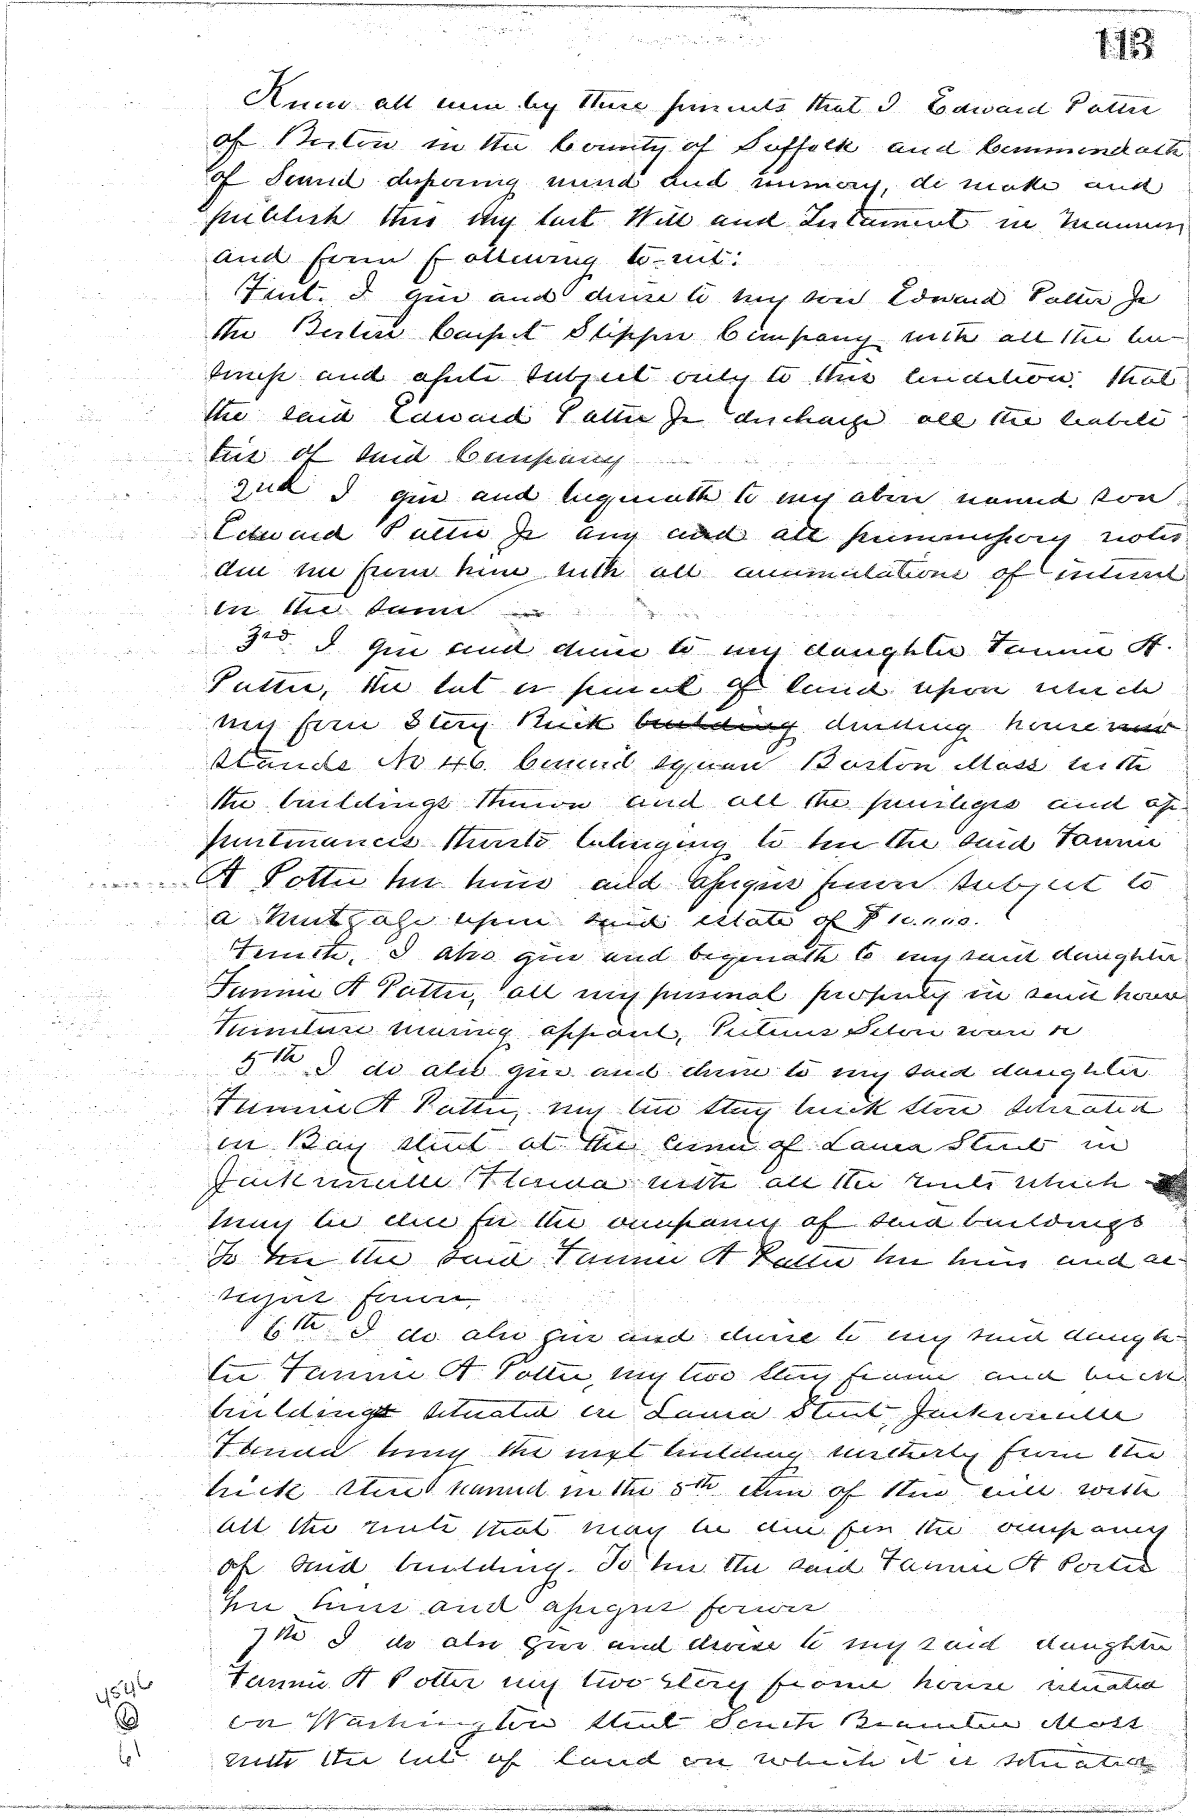 113
Know all men by these presents that I Edward Potter
of Boston in the County of Suffolk and Commonwealth
of Sound disposing mind and memory, do make and
publish this my last Will and Testament in Manner
and form following to-wit:
First. I give and devise to my son Edward Potter Jr
the Boston Carpet Slipper Company with all the bu-
siness and assets subject only to this condition. that
the said Edward Potter Jr discharge all the liabili
ties of said Company
2nd I give and bequeath to my above named son
Edward Potter Jr any and all promissory notes
due me from him with all accumulations of interest
on the same
3rd. I give and devise to my daughter Fannie A.
Potter, the lot or parcel of land upon which
my four Story Brick building dwelling house now
stands No 46. Concord square Boston Mass with
the buildings thereon and all the privileges and ap-
purtenances thereto belonging to her the said Fannie
A Potter her heirs and assigns forever subject to
a Mortgage upon said estate of $10.000.
Fourth. I also give and bequeath to my said daughter
Fannie A Potter, all my personal property in said house
Furniture wearing apparel, Pictures Silver ware &c
5th I do also give and devise to my said daughter
Fannie A Potter, my two story brick store situated
on Bay street at the corner of Laura Street in
Jacksonville Florida with all the rents which
may be due for the occupancy of said buildings
To her the said Fannie A Potter her heirs and as-
signs forever,
6th I do also give and devise to my said daugh-
ter Fannie A Potter, my two story frame and brick
buildings situated on Laura Street, Jacksonville
Florida being the next building northerly from the
brick store named in the 5th item of this will with
all the rents that may be due for the occupancy
of said building. To her the said Fannie A Potter
her heirs and assigns forever
7th I do also give and devise to my said daughter
Fannie A Potter my two story frame house situated
on Washington street South Braintree Mass
with the lot of land on which it is situated
4546
61